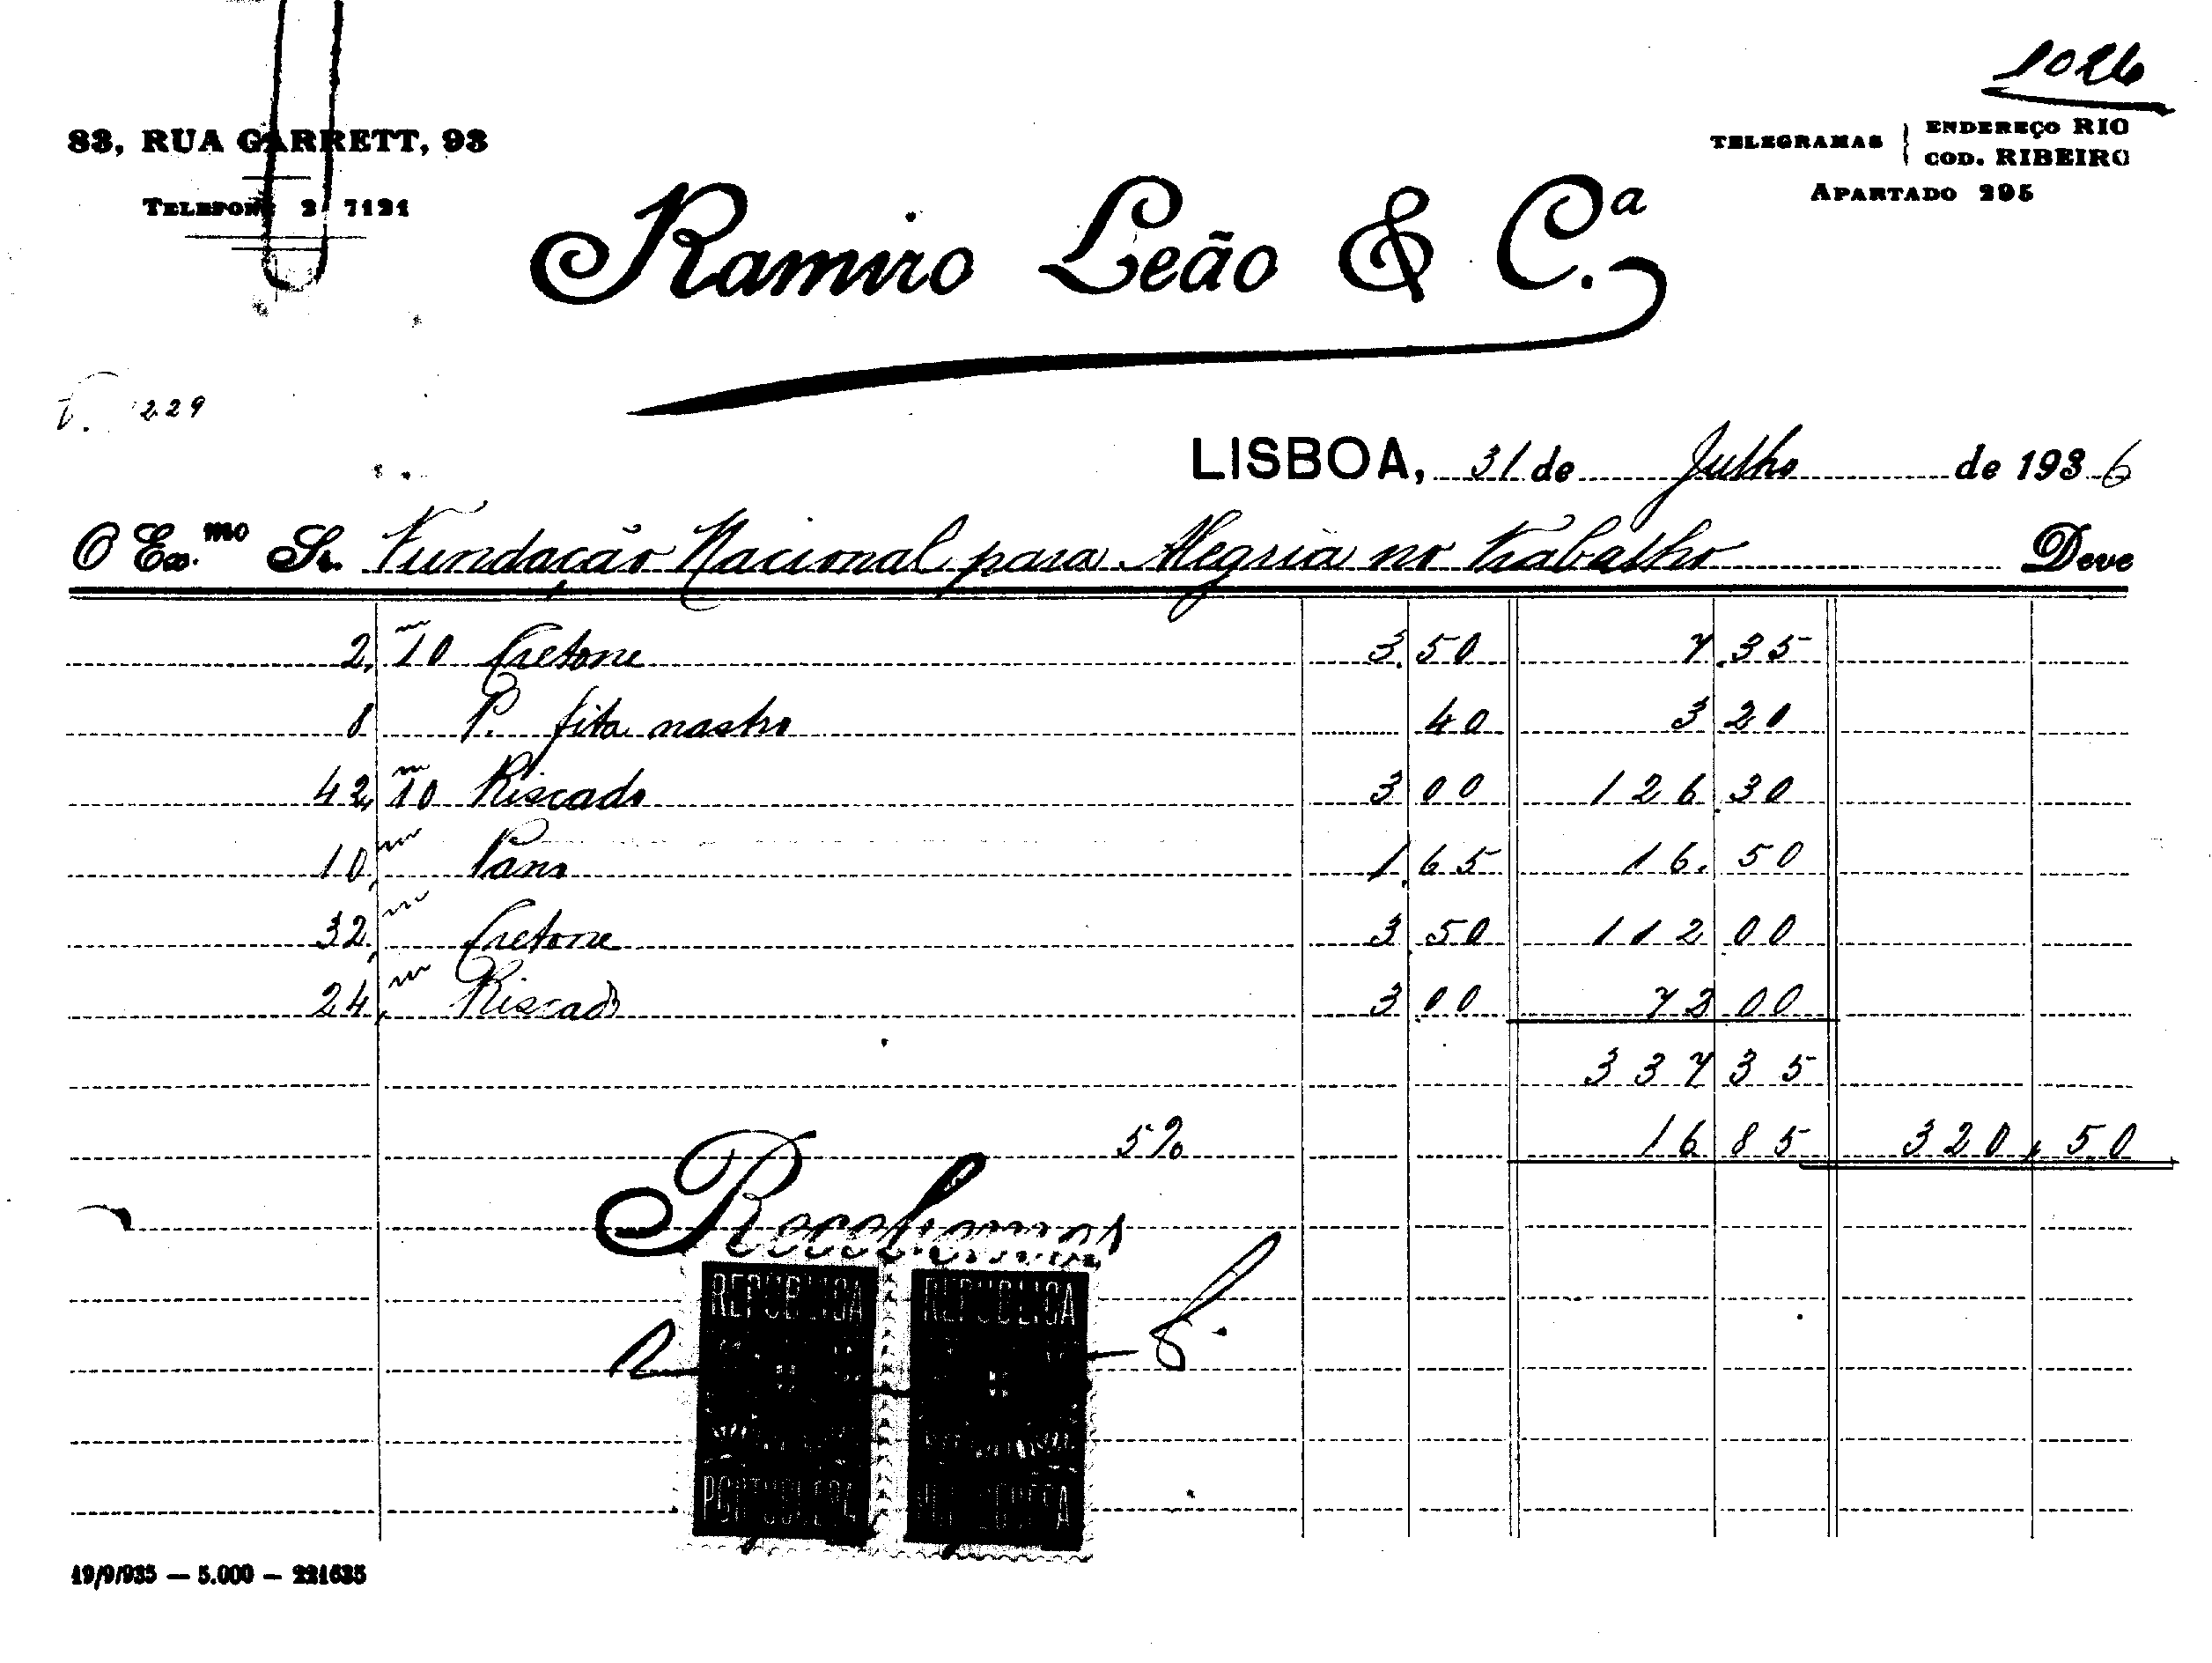 1026
83, RUA GARRETT, 93
TELEFONE 2 7121
TELEGRAMAS ENDEREÇO RIO
COD. RIBEIRO
APARTADO 295
Ramiro Leão & C.ª
229
LISBOA, 31 de Julho de 1936
O Ex.mo Sr. Fundação Nacional para Alegria no Trabalho Deve
2,m10 Cretone 3.50 7.35
8 P. fita nastro 40 3 20
42,m10 Riscado 3 00 126.30
10,m Pano 1.65 16.50
32,m Cretone 3.50 112 00
24,m Riscado 3.00 72 00
337 35
5% 16 85 320,50
Recebemos
REPUBLICA REPUBLICA
PORTUGUESA PORTUGUESA
19/9/935 — 5.000 — 221635